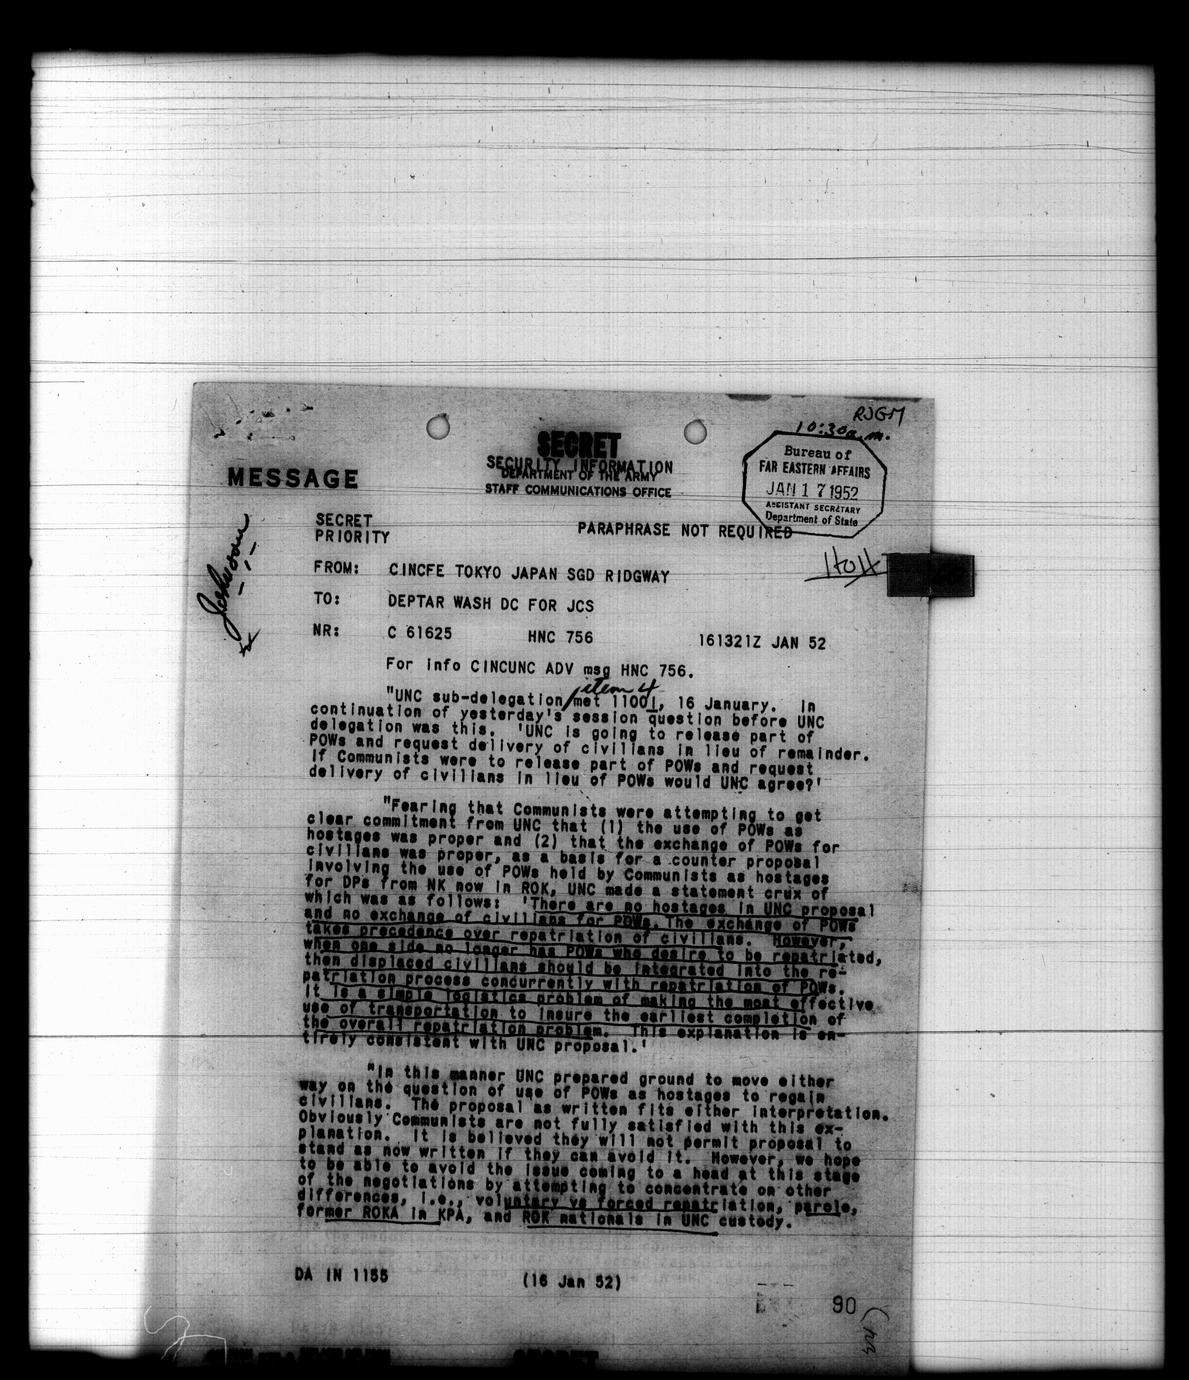 RJGM
10:30 a.m.
SECRET
SECURITY INFORMATION
DEPARTMENT OF THE ARMY
STAFF COMMUNICATIONS OFFICE
MESSAGE
Bureau of
FAR EASTERN AFFAIRS
JAN 17 1952
ASSISTANT SECRETARY
Department of State
SECRET
PRIORITY
PARAPHRASE NOT REQUIRED
Johnson
FROM: CINCFE TOKYO JAPAN SGD RIDGWAY
TO: DEPTAR WASH DC FOR JCS
NR: C 61625 HNC 756 161321Z JAN 52
For info CINCUNC ADV msg HNC 756.
item 4
"UNC sub-delegation/met 1100I, 16 January. In
continuation of yesterday's session question before UNC
delegation was this. 'UNC is going to release part of
POWs and request delivery of civilians in lieu of remainder.
If Communists were to release part of POWs and request
delivery of civilians in lieu of POWs would UNC agree?'
"Fearing that Communists were attempting to get
clear commitment from UNC that (1) the use of POWs as
hostages was proper and (2) that the exchange of POWs for
civilians was proper, as a basis for a counter proposal
involving the use of POWs held by Communists as hostages
for DPs from NK now in ROK, UNC made a statement crux of
which was as follows: 'There are no hostages in UNC proposal
and no exchange of civilians for POWs. The exchange of POWs
takes precedence over repatriation of civilians. However,
when one side no longer has POWs who desire to be repatriated,
then displaced civilians should be integrated into the re-
patriation process concurrently with repatriation of POWs.
It is a simple logistics problem of making the most effective
use of transportation to insure the earliest completion of
the overall repatriation problem. This explanation is en-
tirely consistent with UNC proposal.'
"In this manner UNC prepared ground to move either
way on the question of use of POWs as hostages to regain
civilians. The proposal as written fits either interpretation.
Obviously Communists are not fully satisfied with this ex-
planation. It is believed they will not permit proposal to
stand as now written if they can avoid it. However, we hope
to be able to avoid the issue coming to a head at this stage
of the negotiations by attempting to concentrate on other
differences, i.e., voluntary vs forced repatriation, parole,
former ROKA in KPA, and ROK nationals in UNC custody.
DA IN 1155 (16 Jan 52)
90
SECRET